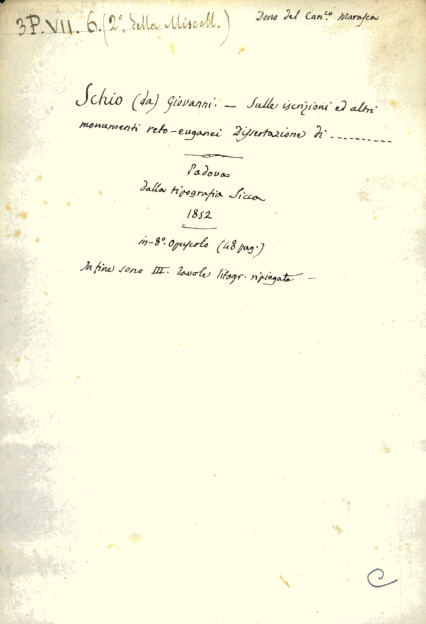 3P. VII. 6. (2°. della Miscell.)
Dono del Can.co Marasca
Schio (da) Giovanni. — Sulle iscrizioni ed altri
monumenti reto-euganei Dissertazione di ----------
Padova
dalla tipografia Sicca
1852
in-8°. opuscolo (48 pag.)
In fine sono III. Tavole litogr. ripiegate —
C